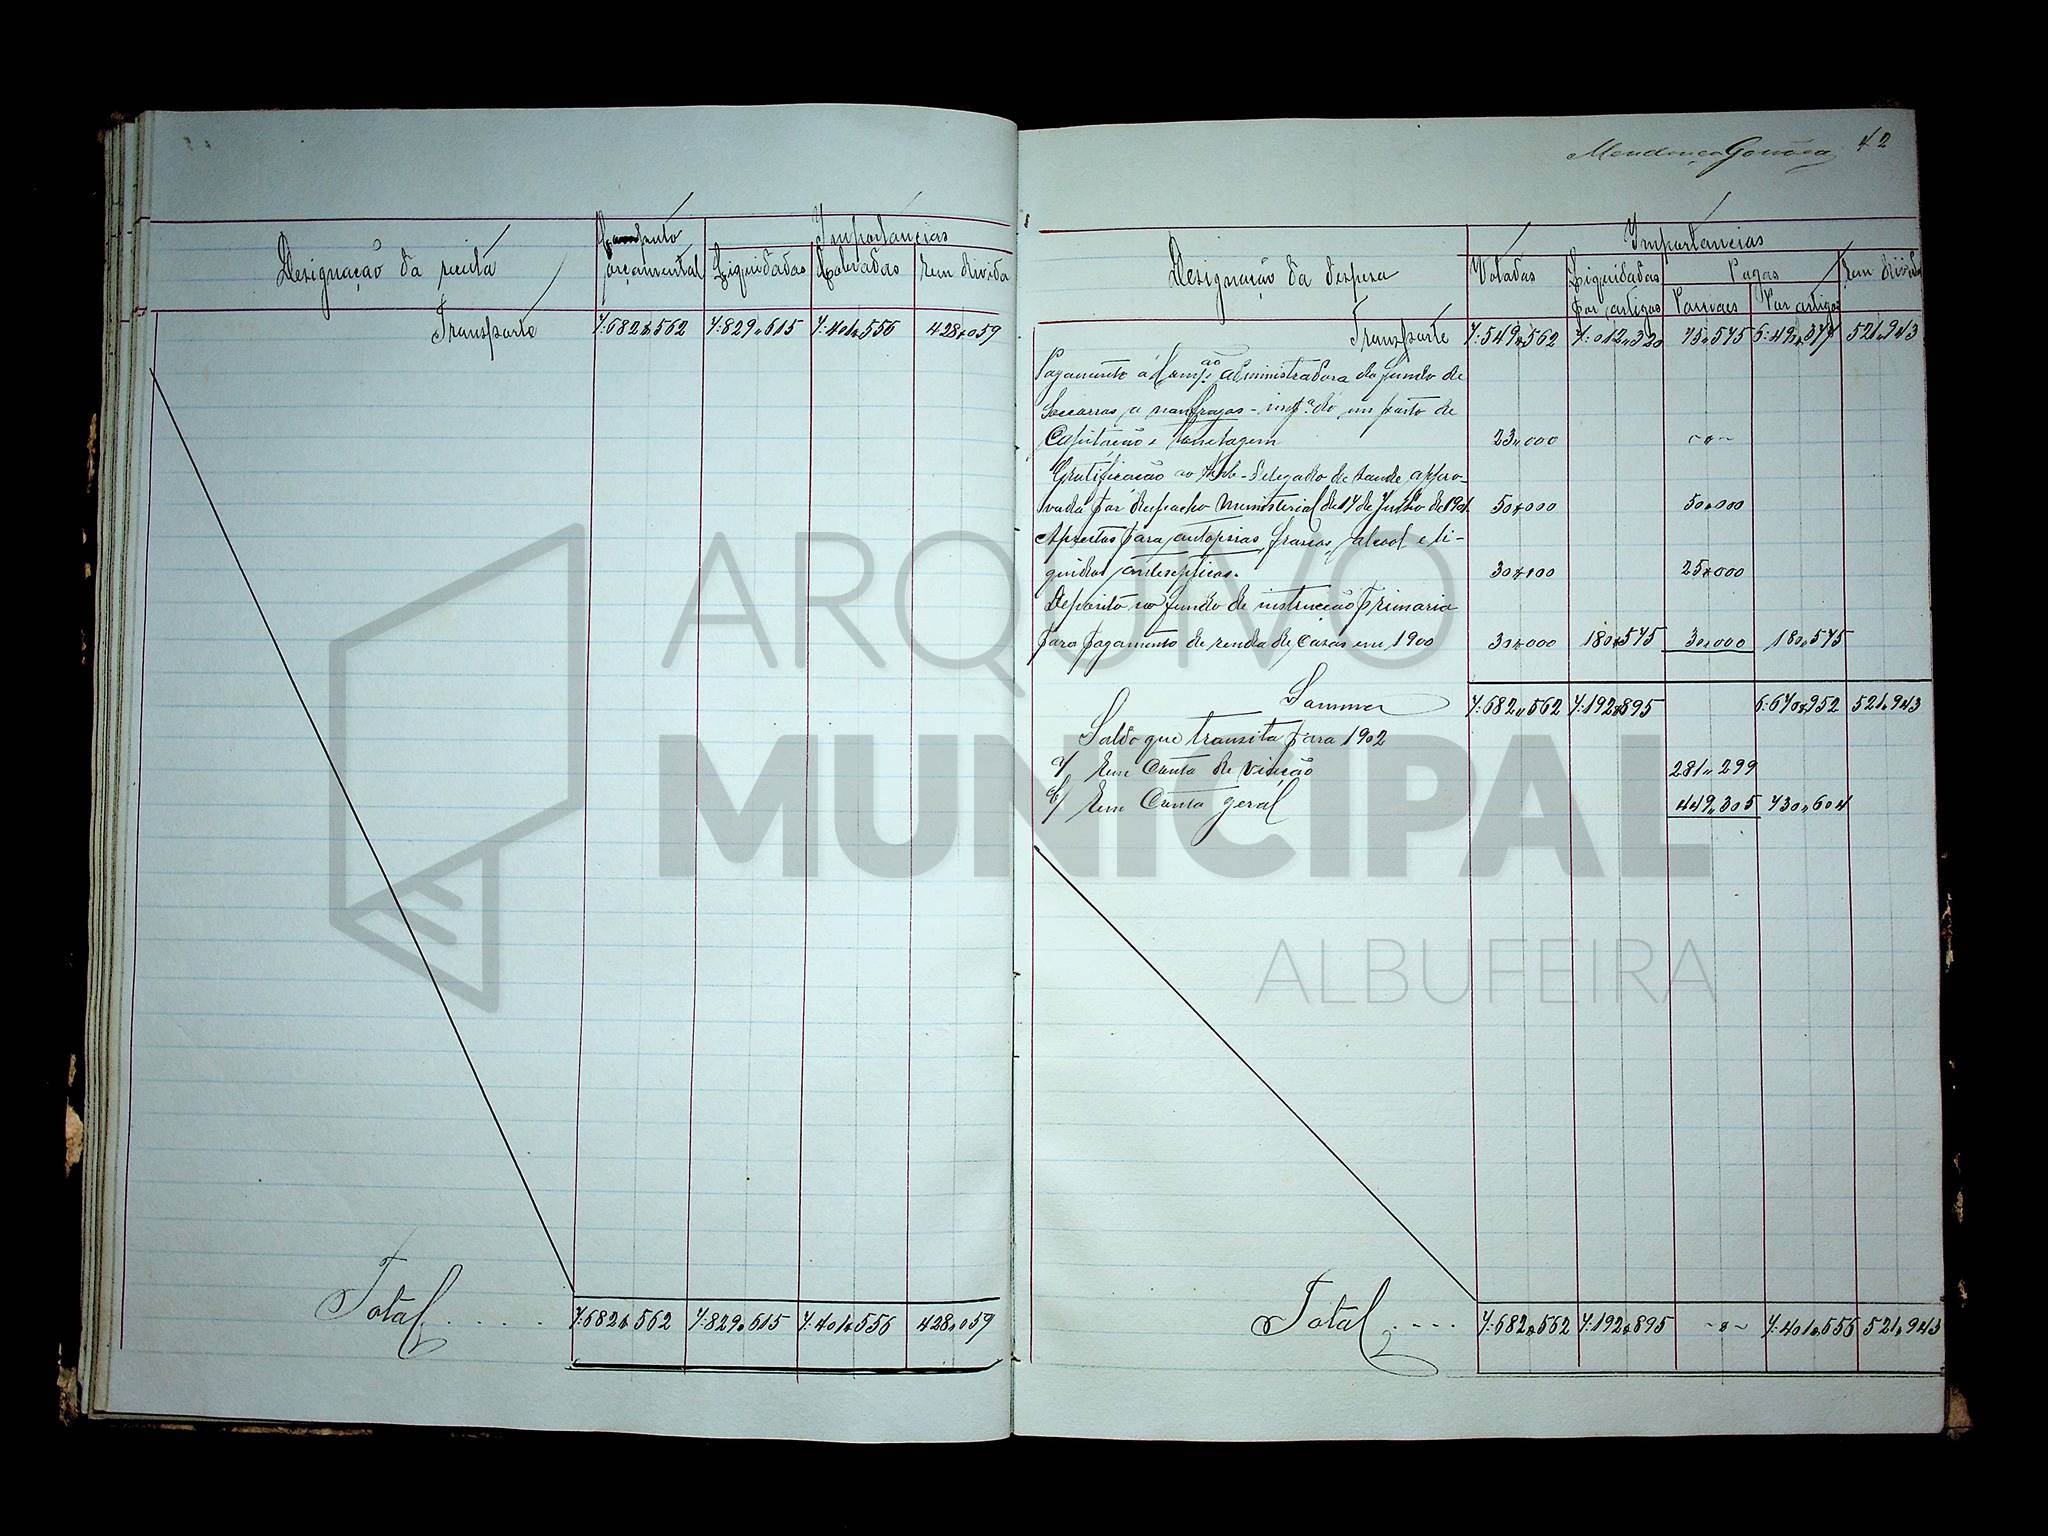 Designação da receita
orçamental
Importancias
Liquidadas
Cobradas
Em divida
Transporte 7:682$562 7:829$615 7:401$556 428$059
Total..... 7:682$562 7:829$615 7:401$556 428$059
Mendonça Gouvêa 42
Designação da despeza
Importancias
Votadas
Liquidadas
Por artigos
Pagas
Parciaes
Por artigos
Em divida
Transporte 7:549$562 7:012$320 75$575 521$943
Pagamento á Comm.ão administradora do fundo de
Soccorros a naufragos - do em posto de
Capitação e Tonelagem 23$000 -$-
Gratificação ao Sub-Delegado de saude appro-
vada por despacho Ministerial de 17 de Julho de 1901 50$000 50$000
para autopsias, frascos, alcool e li-
quidos antisepticos. 25$000
Deposito no fundo de instrucção primaria
para pagamento de renda de casas em 1900 30$000 180$575 30$000 180$575
Somma 7:682$562 7:192$895 6:670$952 521$943
Saldo que transita para 1902
a) Em Conta de viação 281$299
b) Em Conta geral 449$305 730$604
Total.... 7:682$562 7:192$895 -$- 7:401$556 521$943
ARQUIVO
MUNICIPAL
ALBUFEIRA